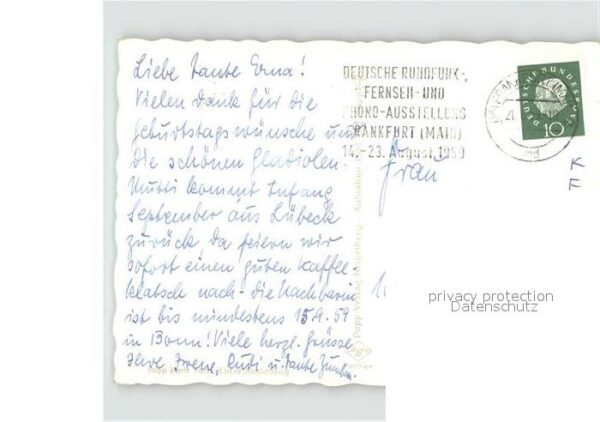 Liebe Tante Erna!
Vielen Dank für die
Geburtstagswünsche und
die schönen Gladiolen.
Mutti kommt Anfang
September aus Lübeck
zurück, da feiern wir
sofort einen guten Kaffee-
klatsch nach - die Nachbarin
ist bis mindestens 15.9.59
in Bonn! Viele herzl. Grüsse
Irene, Rudi u. Tante
DEUTSCHE RUNDFUNK-,
FERNSEH-UND
PHONO-AUSSTELLUNG
FRANKFURT (MAIN)
14.-23. August 1959
DEUTSCHE BUNDESPOST
10
Frau
K
F
Popp-Verlag Heidelberg
privacy protection
Datenschutz